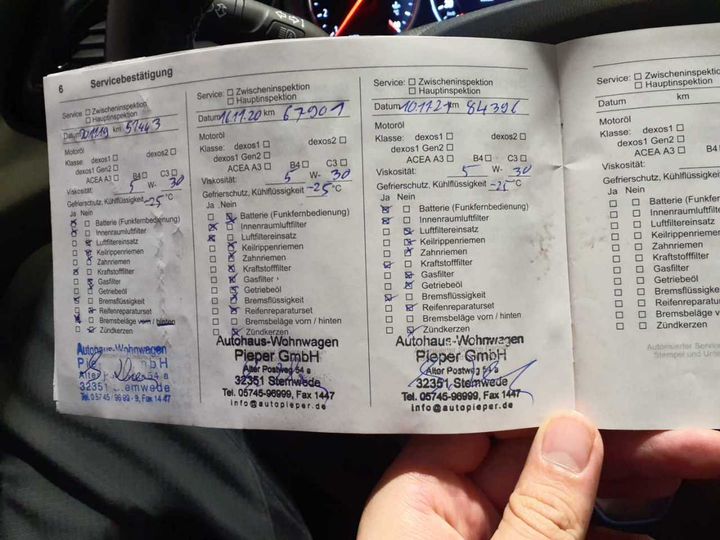 6 Servicebestätigung
Service: ☐ Zwischeninspektion
☐ Hauptinspektion
Datum 20.11.19 km 51443
Motoröl
Klasse: dexos1 ☐ dexos2 ☐
dexos1 Gen2 ☐
ACEA A3 ☐ B4 ☐ C3 ☐
Viskosität: 5 W- 30
Gefrierschutz, Kühlflüssigkeit -25 °C
Ja Nein
Batterie (Funkfernbedienung)
Innenraumluftfilter
Luftfiltereinsatz
Keilrippenriemen
Zahnriemen
Kraftstofffilter
Gasfilter
Getriebeöl
Bremsflüssigkeit
Reifenreparaturset
Bremsbeläge vorn / hinten
Zündkerzen
Autohaus-Wohnwagen
Alter 54 a
32351
Tel. 05745/ Fax 1447
Service: ☐ Zwischeninspektion
☐ Hauptinspektion
Datum 16.11.20 km 67901
Motoröl
Klasse: dexos1 ☐ dexos2 ☐
dexos1 Gen2 ☐
ACEA A3 ☐ B4 ☐ C3 ☐
Viskosität: 5 W- 30
Gefrierschutz, Kühlflüssigkeit -25 °C
Ja Nein
Batterie (Funkfernbedienung)
Innenraumluftfilter
Luftfiltereinsatz
Keilrippenriemen
Zahnriemen
Kraftstofffilter
Gasfilter
Getriebeöl
Bremsflüssigkeit
Reifenreparaturset
Bremsbeläge vorn / hinten
Zündkerzen
Autohaus-Wohnwagen
Pieper GmbH
Alter Postweg 54 a
32351 Stemwede
Tel. 05745-96999, Fax 1447
info@autopieper.de
Service: ☐ Zwischeninspektion
☐ Hauptinspektion
Datum 10.11.21 km 84396
Motoröl
Klasse: dexos1 ☐ dexos2 ☐
dexos1 Gen2 ☐
ACEA A3 ☐ B4 ☐ C3 ☐
Viskosität: 5 W- 30
Gefrierschutz, Kühlflüssigkeit -25 °C
Ja Nein
Batterie (Funkfernbedienung)
Innenraumluftfilter
Luftfiltereinsatz
Keilrippenriemen
Zahnriemen
Kraftstofffilter
Gasfilter
Getriebeöl
Bremsflüssigkeit
Reifenreparaturset
Bremsbeläge vorn / hinten
Zündkerzen
Autohaus-Wohnwagen
Pieper GmbH
Alter Postweg 54 a
32351 Stemwede
Tel. 05745-96999, Fax 1447
info@autopieper.de
Service: ☐ Zwischeninspektion
☐ Hauptinspektion
Datum km
Motoröl
Klasse: dexos1 ☐
dexos1 Gen2 ☐
ACEA A3 ☐ B4
Viskosität:
Gefrierschutz, Kühlflüssig
Ja Nein
Batterie (Funkfe
Innenraumluftfilter
Luftfiltereinsatz
Keilrippenriemen
Zahnriemen
Kraftstofffilter
Gasfilter
Getriebeöl
Bremsflüssigke
Reifenreparatur
Bremsbeläge v
Zündkerzen
Autorisierter Service
Stempel und Unte